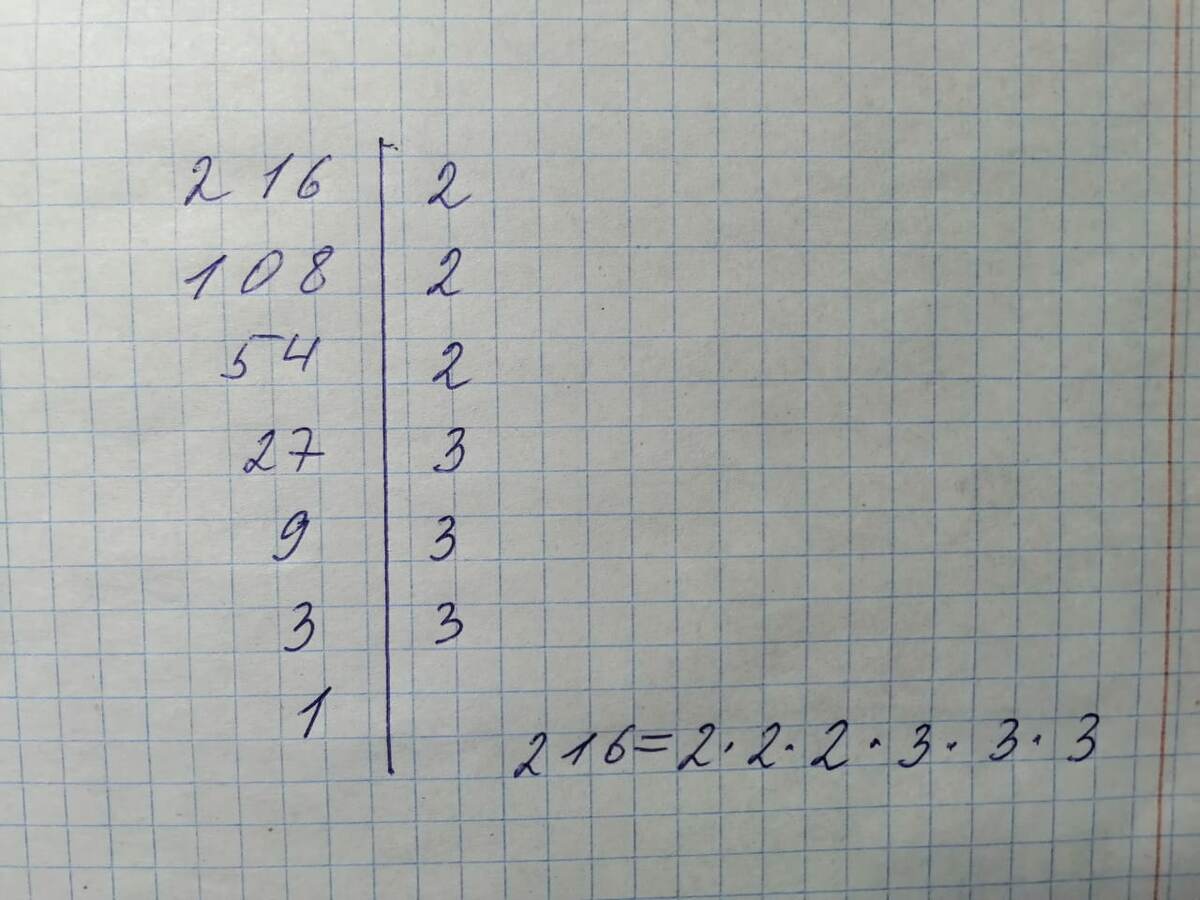 216 | 2
108 | 2
54 | 2
27 | 3
9 | 3
3 | 3
1 |
216=2·2·2·3·3·3